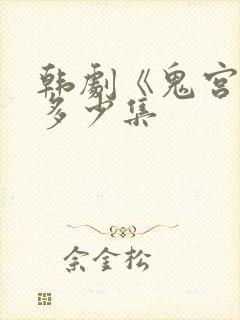 韩劇《鬼宫
多少集
佘金松